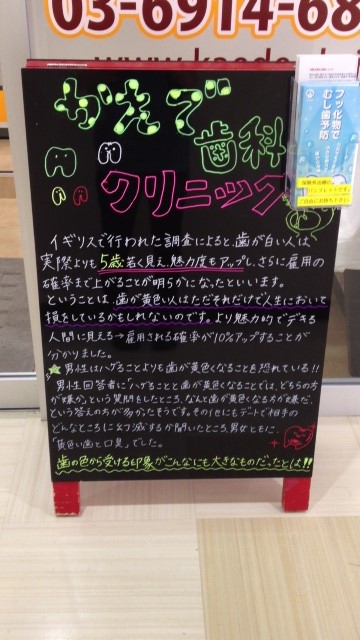 03-6914-68
かえで
歯科
クリニック
フッ化物で
むし歯予防
ご自由にお持ち下さい
イギリスで行われた調査によると、歯が白い人は、
実際よりも5歳若く見え、魅力度もアップし、さらに雇用の
確率まで上がることが明らかになったといいます。
ということは、歯が黄色い人はただそれだけで人生において
損をしているかもしれないのです。より魅力的でデキる
人間に見える→雇用される確率が10%アップすることが
分かりました。
男性はハゲることよりも歯が黄色くなることを恐れている!!
男性回答者に「ハゲることと歯が黄色くなることでは、どちらの方
が嫌か」という質問をしたところ、なんと歯が黄色くなる方が嫌だ、
という答えの方が多かったそうです。その他にもデートで相手の
どんなところに幻滅するか聞いたところ、男女ともに、
「黄色い歯と口臭」でした。
歯の色から受ける印象がこんなにも大きなものだったとは!!